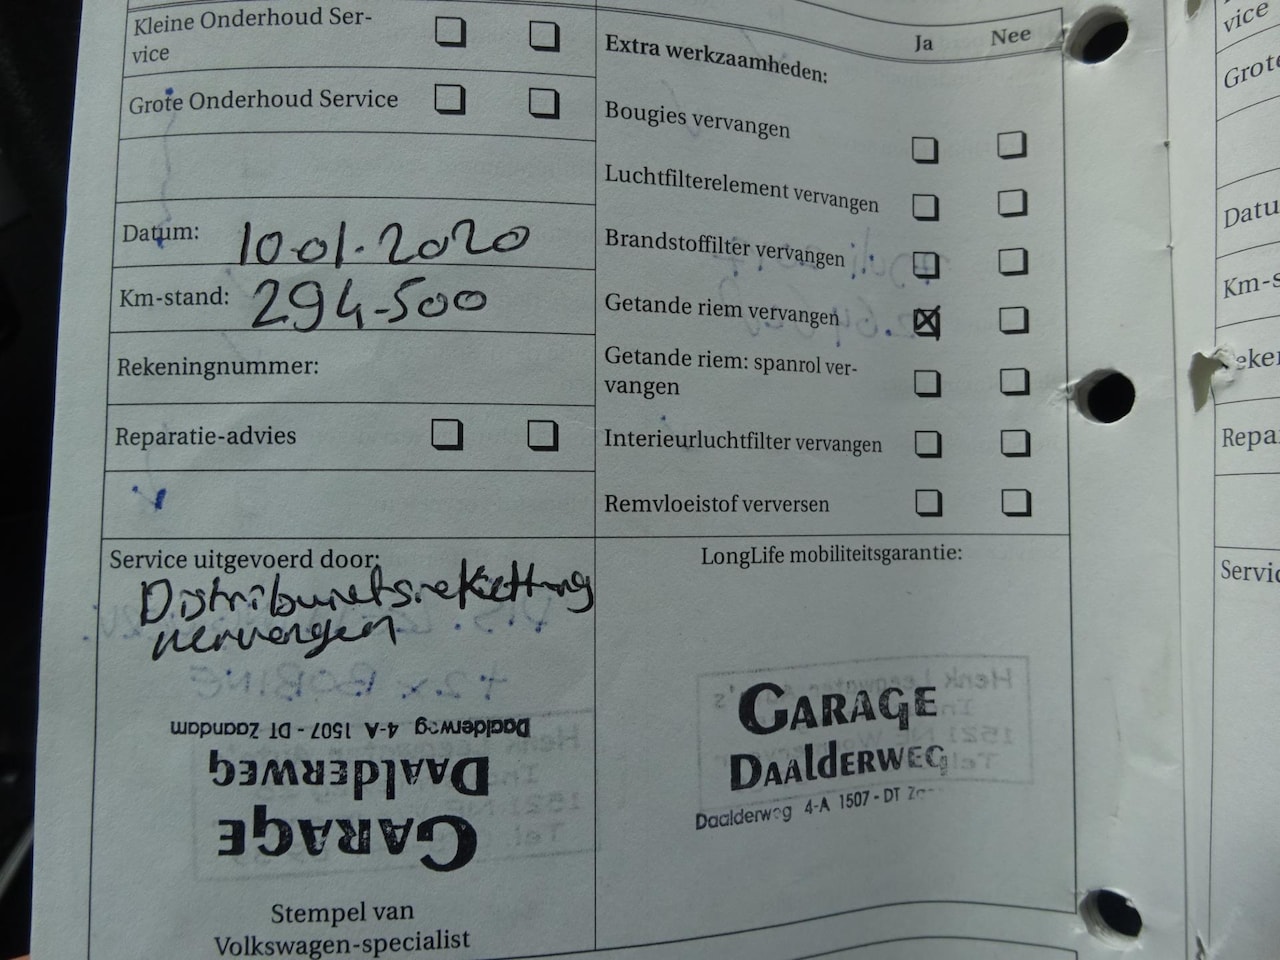 Kleine Onderhoud Ser-
vice
Grote Onderhoud Service
Datum: 10-01-2020
Km-stand: 294-500
Rekeningnummer:
Reparatie-advies
Extra werkzaamheden: Ja Nee
Bougies vervangen
Luchtfilterelement vervangen
Brandstoffilter vervangen
Getande riem vervangen
Getande riem: spanrol ver-
vangen
Interieurluchtfilter vervangen
Remvloeistof verversen
Service uitgevoerd door:
vervangen
Daalderweg 4-A 1507 - DT Zaandam
DAALDERWEG
GARAGE
Stempel van
Volkswagen-specialist
LongLife mobiliteitsgarantie:
GARAGE
DAALDERWEG
Daalderweg 4-A 1507 - DT
vice
Grote
Datu
Km-s
Repa
Servic